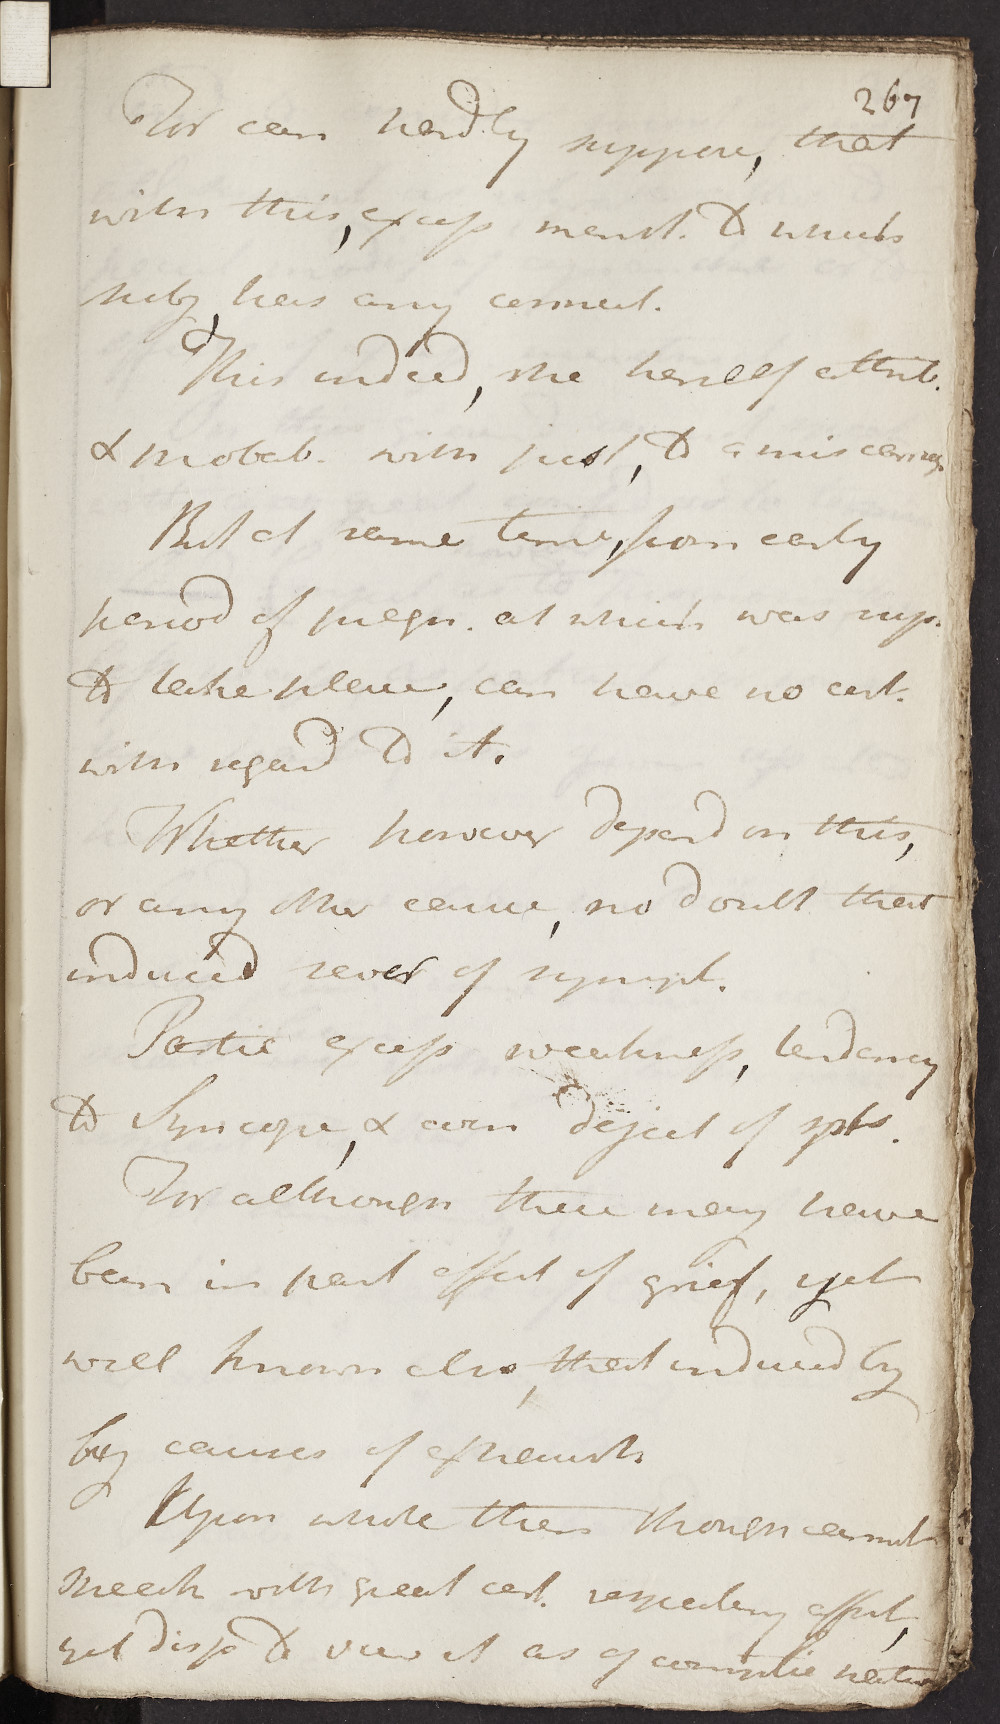 267
For can hardly suppose, that
with this, excess menst. to which
subj. has any connect.
This indeed, she herself attrib.
& probab. with just, to a miscarriage
But at same time, from early
period of pregn. at which was sup.
to take place, can have no cert.
with regard to it.
Whether however depend on this,
or any other cause, no doubt that
induced sever of sympt.
Partic excess weakness, tendency
to Syncope, & even deject of spts.
For although these may have
been in part effect of grief, yet
well known also, that induced by
by causes of exhaust.
Upon whole then though cannot
speak with great cert. respecting affect,
yet disp to view it as of complic nature